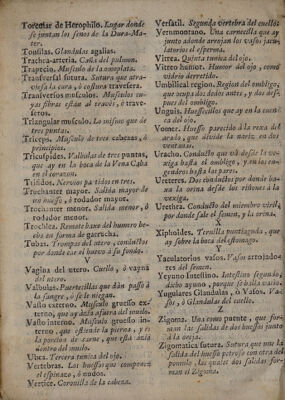 Torcular de Herophilo. Lugar donde
se juntan los senos de la Dura-Mater.
Tonsilas. Glandulas agalias.
Trachea-arteria. Caña del pulmon.
Trapecio. Musculo de la omoplata.
Tranſverſal ſutura. Sutura que atravieſa la cara, ò eſpina traveſera.
Tranſverſos muſculos. Muſculos cuyas fibras eſtàn al travès, ò traveſeros.
Triangular muſculo. Lo miſmo que de
tres puntas.
Triceps. Muſculo de tres cabezas, ò
principios.
Tricuſpides. Valbulas de tres puntas,
que ay en la boca de la Vena Caba
en el corazon.
Trochanter mayor. Salida mayor de
un muslo, ò rodador mayor.
Trochanter menor. Salida menor, ò
rodador menor.
Trochlea. Remate baxo del humero hecho en forma de garrucha.
Tubas. Trompas del utero, conductos
por donde cae el huevo à ſu fondo.
V
Vagina del utero. Cuello, ò vayna
del utero.
Valbulas. Puertecillas que dàn paſſo à
la ſangre, ò ſe le niegan.
Vaſto externo. Muſculo grueſſo externo, que ay àzia afuera del muslo.
Vaſto interno. Muſculo grueſſo interno, que eſtiende la pierna, y es
la porcion de carne, que eſtà àzia
dentro del muslo.
Ubea. Tercera tunica del ojo.
Vertebras. Los hueſſos que componen
el eſpinazo, ò nudos.
Vertice. Coronilla de la cabeza.
Verſatil. Segunda vertebra del cuello.
Vermontano. Una carnecilla que ay
junto adonde arrojan los vaſos jaculatorios el eſperma.
Vitrea. Quinta tunica del ojo.
Vitreo humor. Humor del ojo, como
vidrio derretido.
Umbilical region. Region del ombligo,
que ocupa dos dedos antes, y dos deſpues del ombligo.
Unguis. Hueſſecillos que ay en la cuenca del ojo.
Vomer. Hueſſo parecido à la rexa del
arado, que divide la nariz en dos
ventanas.
Uracho. Conducto que và deſde la vexiga haſta el ombligo, y en los engendros haſta las pares.
Ureteres. Dos conductos por donde baxa la orina deſde los riñones à la
vexiga.
Urethra. Conducto del miembro viril,
por donde ſale el ſemen, y la orina.
X
Xiphoides. Ternilla puntiaguda, que
ay ſobre la boca del eſtomago.
Y
Yaculatorios vaſos. Vaſos arrojadores del ſemen.
Yeyuno inteſtino. Inteſtino ſegundo,
dicho ayuno, porque ſe halla vacio.
Yugulares Glandulas, ò Vaſos. Vaſos, ò Glandulas del cuello.
Z
Zigoma. Como una puente, que forman las ſalidas de dos hueſſos junto
à la oreja.
Zigomatica ſutura. Sutura que une la
ſalida del hueſſo petroſo con otra del
pomulo, las quales dos ſalidas forman el Zigoma.